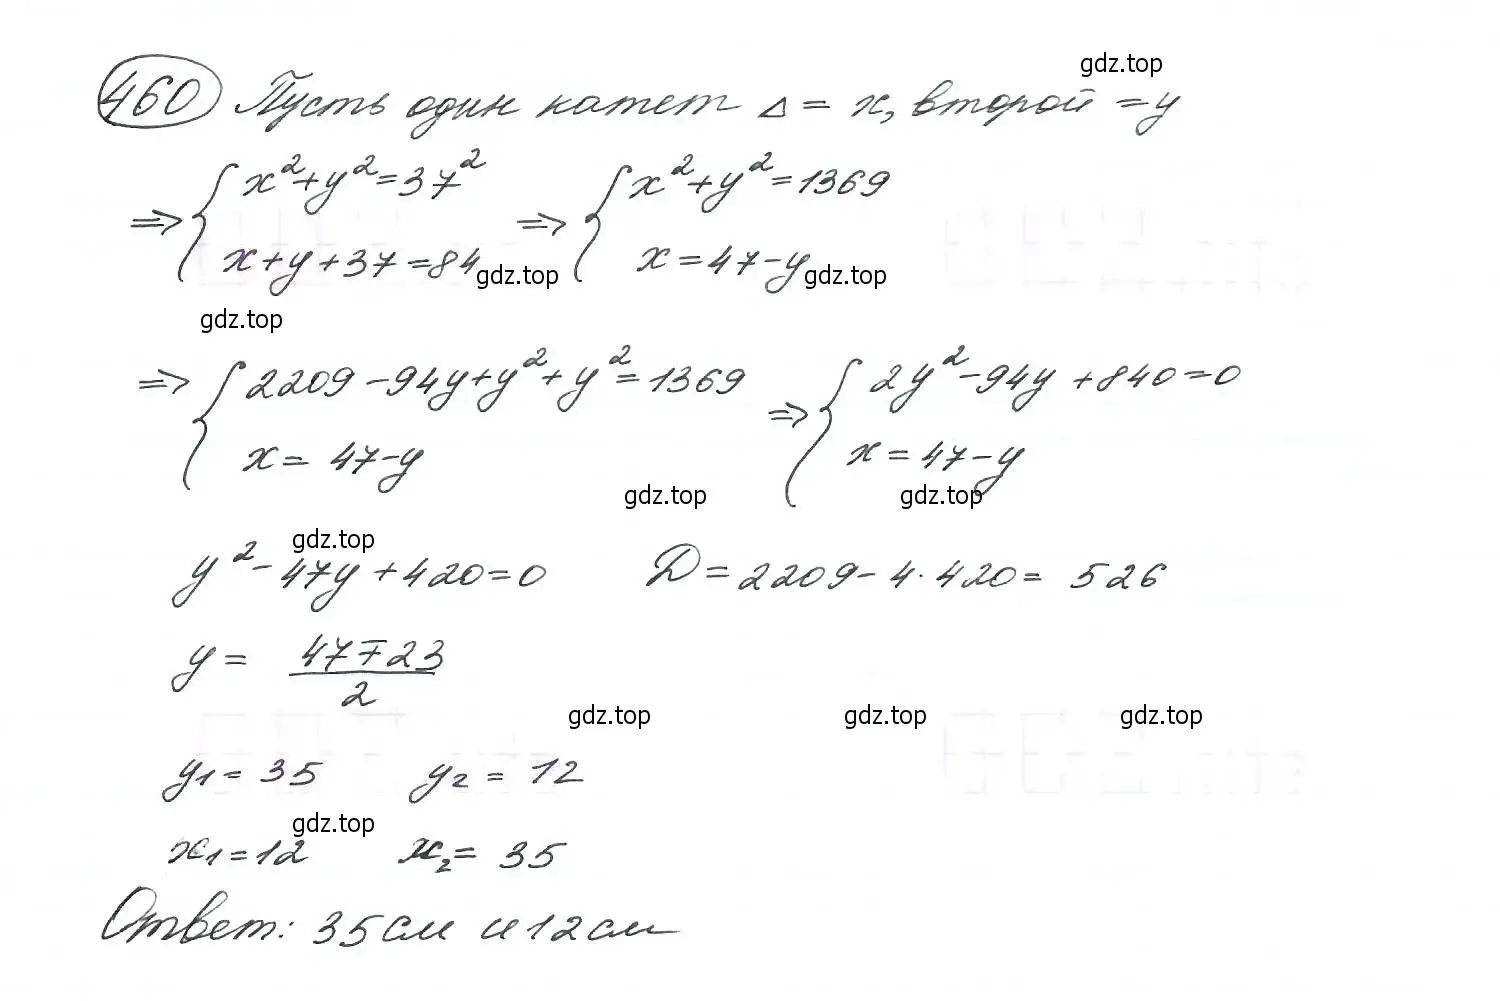 gdz.top
460 Пусть один катет Δ = x, второй = y
⇒ { x² + y² = 37² ⇒ { x² + y² = 1369
x + y + 37 = 84 x = 47 - y
gdz.top gdz.top
gdz.top
⇒ { 2209 - 94y + y² + y² = 1369 ⇒ { 2y² - 94y + 840 = 0
x = 47 - y x = 47 - y
gdz.top gdz.top
gdz.top
y² - 47y + 420 = 0 D = 2209 - 4·420 = 526
y = (47 ∓ 23)/2
gdz.top gdz.top gdz.top
y₁ = 35 y₂ = 12
gdz.top
x₁ = 12 x₂ = 35
Ответ: 35 см и 12 см